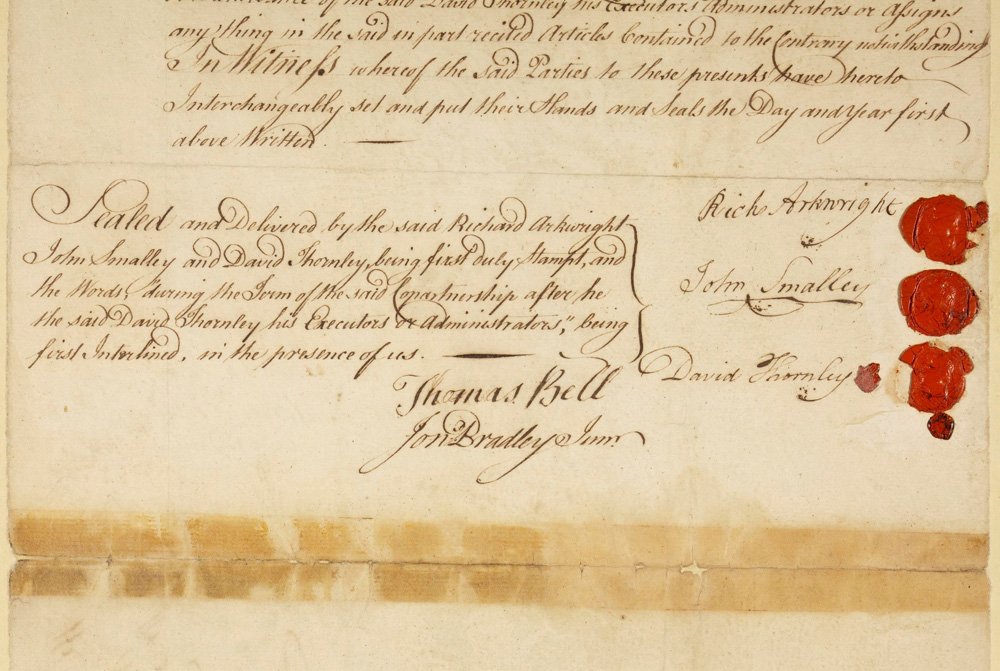 of the said David Thornley his Executors Administrators or Assigns
any thing in the said in part recited Articles Contained to the Contrary notwithstanding
In Witness whereof the said Parties to these presents have hereto
Interchangeably set and put their Hands and Seals the Day and Year first
above Written.
Sealed and Delivered by the said Richard Arkwright
John Smalley and David Thornley, being first duly Stampt, and
the Words, "during the Term of the said Copartnership after he
the said David Thornley his Executors or Administrators," being
first Interlined, in the presence of us.
Thomas Bell
Jon Bradley Junr.
Rich Arkwright
John Smalley
David Thornley